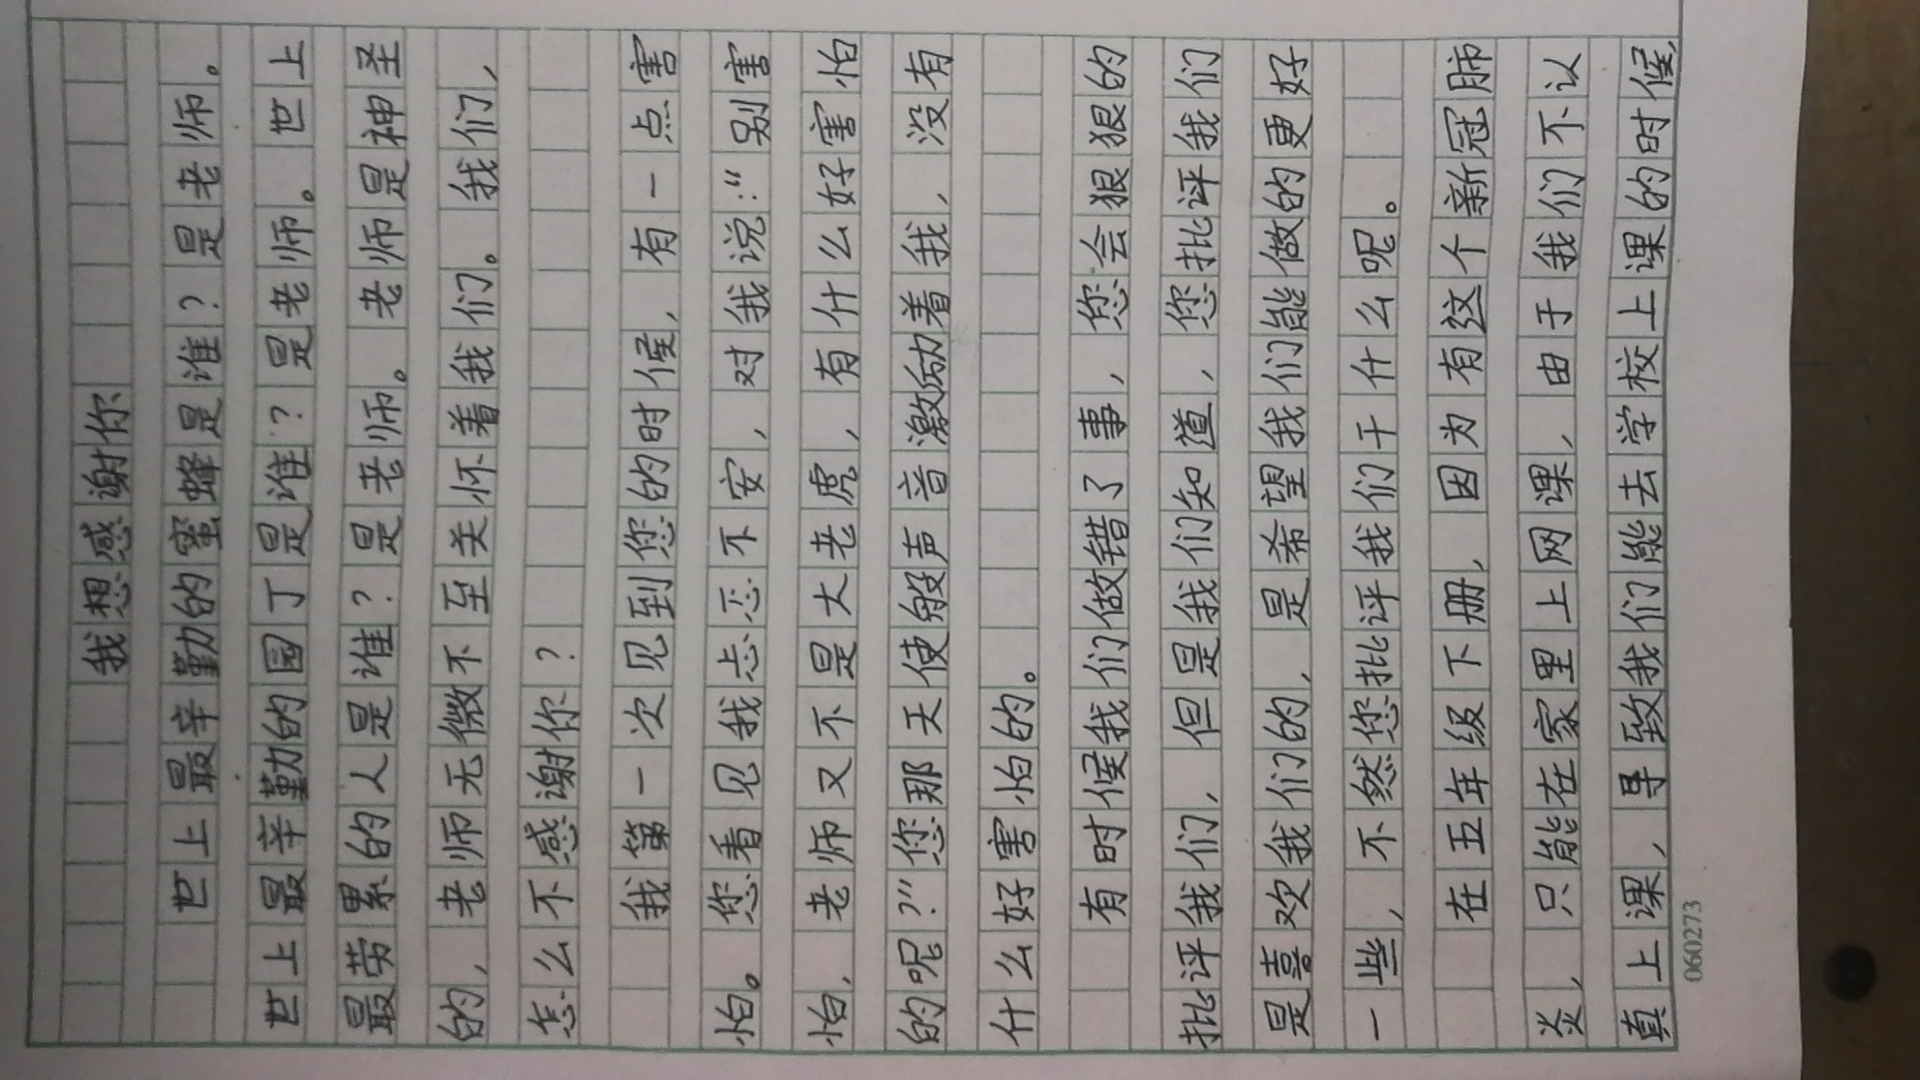 我想感谢你
世上最辛勤的蜜蜂是谁？是老师。
世上最辛勤的园丁是谁？是老师。世上
最劳累的人是谁？是老师。老师是神圣
的，老师无微不至关怀着我们。我们，
怎么不感谢你？
我第一次见到您的时候，有一点害
怕。您看见我忐忑不安，对我说：“别害
怕，老师又不是大老虎，有什么好害怕
的呢？”您那天使般声音激励着我，没有
什么好害怕的。
有时候我们做错了事，您会狠狠的
批评我们，但是我们知道，您批评我们
是喜欢我们的，是希望我们能做的更好
一些，不然您批评我们干什么呢。
在五年级下册，因为有这个新冠肺
炎，只能在家里上网课，由于我们不认
真上课，导致我们能去学校上课的时候，
060273